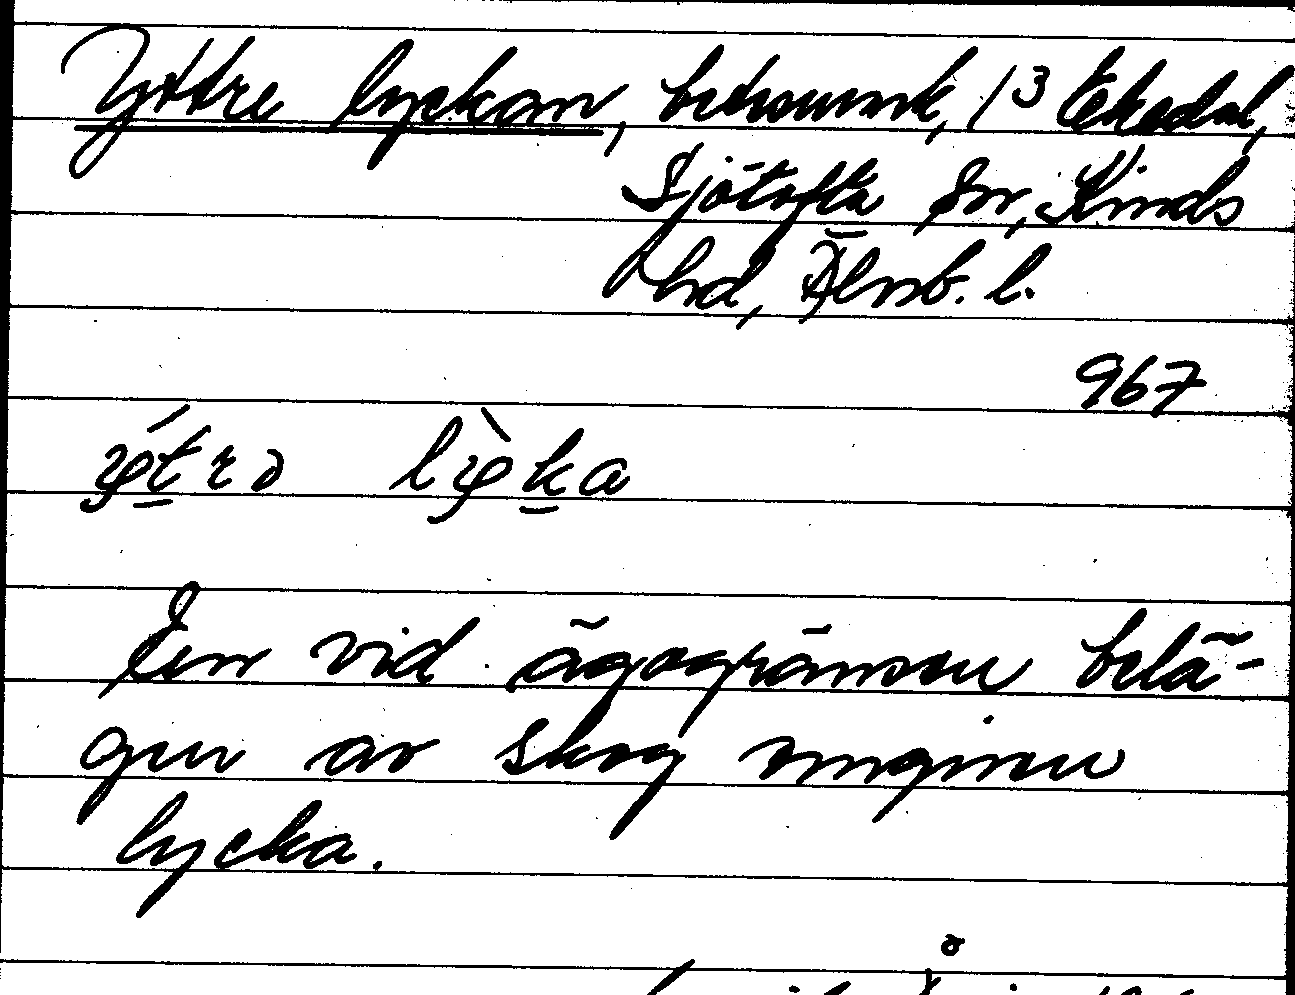 Yttre lyckan, betesmark, 13 Ekedal,
Sjötofta sn, Kinds
hd, Älvsb. l.
967
En vid ägogränsen belä-
gen av skog omgiven
lycka.